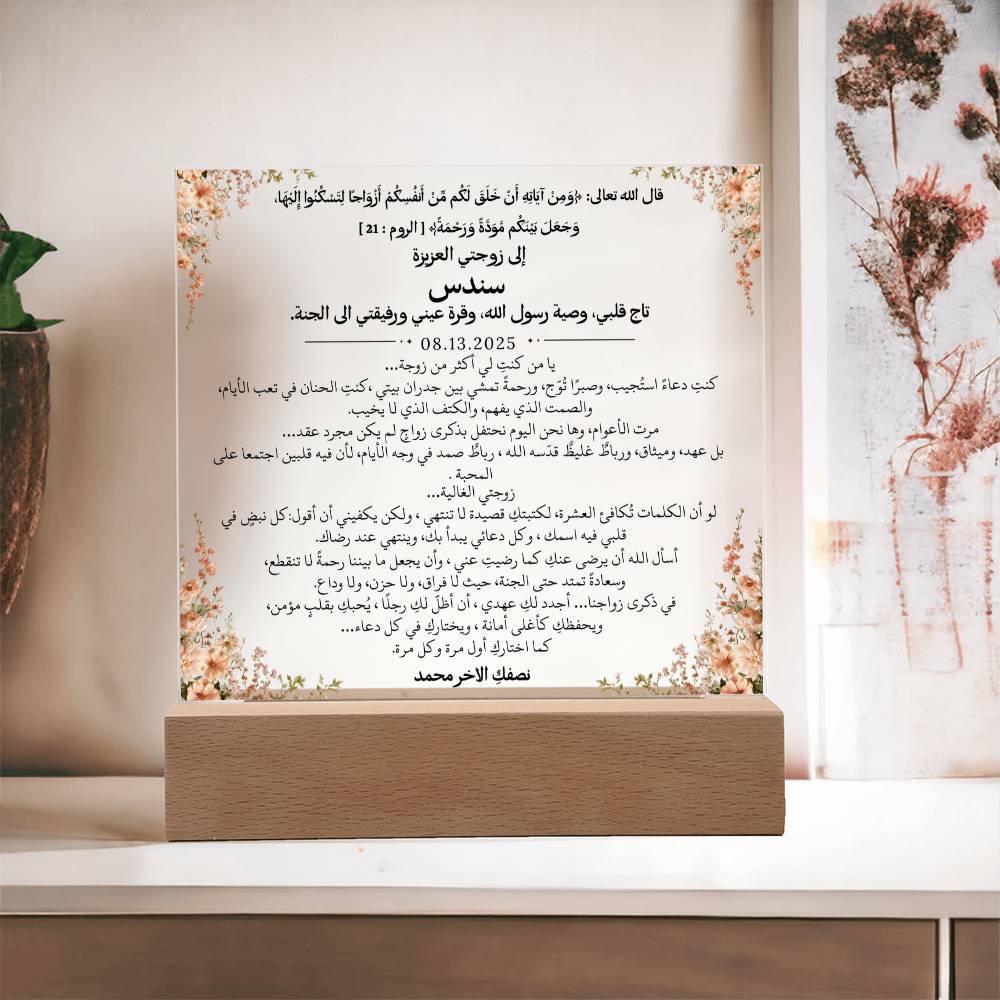 قال الله تعالى: ﴿وَمِنْ آيَاتِهِ أَنْ خَلَقَ لَكُم مِّنْ أَنفُسِكُمْ أَزْوَاجًا لِتَسْكُنُوا إِلَيْهَا،
وَجَعَلَ بَيْنَكُم مَّوَدَّةً وَرَحْمَةً﴾ [ الروم : 21 ]
إلى زوجتي العزيزة
سندس
تاج قلبي، وصية رسول الله، وقرة عيني ورفيقتي الى الجنة.
08.13.2025
يا من كنتِ لي أكثر من زوجة...
كنتِ دعاءً استُجيب، وصبرًا تُوّج، ورحمةً تمشي بين جدران بيتي ،كنتِ الحنان في تعب الأيام،
والصمت الذي يفهم، والكتف الذي لا يخيب.
مرت الأعوام، وها نحن اليوم نحتفل بذكرى زواجٍ لم يكن مجرد عقد...
بل عهد، وميثاق، ورباطٌ غليظٌ قدّسه الله ، رباطٌ صمد في وجه الأيام، لأن فيه قلبين اجتمعا على
المحبة .
زوجتي الغالية...
لو أن الكلمات تُكافئ العشرة، لكتبتكِ قصيدة لا تنتهي ، ولكن يكفيني أن أقول:كل نبضٍ في
قلبي فيه اسمك ، وكل دعائي يبدأ بك، وينتهي عند رضاك.
أسأل الله أن يرضى عنكِ كما رضيتِ عني ، وأن يجعل ما بيننا رحمةً لا تنقطع،
وسعادةً تمتد حتى الجنة، حيث لا فراق، ولا حزن، ولا وداع.
في ذكرى زواجنا... أجدد لكِ عهدي ، أن أظلّ لكِ رجلًا ، يُحبكِ بقلبٍ مؤمن،
ويحفظكِ كأغلى أمانة ، ويختاركِ في كل دعاء...
كما اختاركِ أول مرة وكل مرة.
نصفكِ الاخر محمد